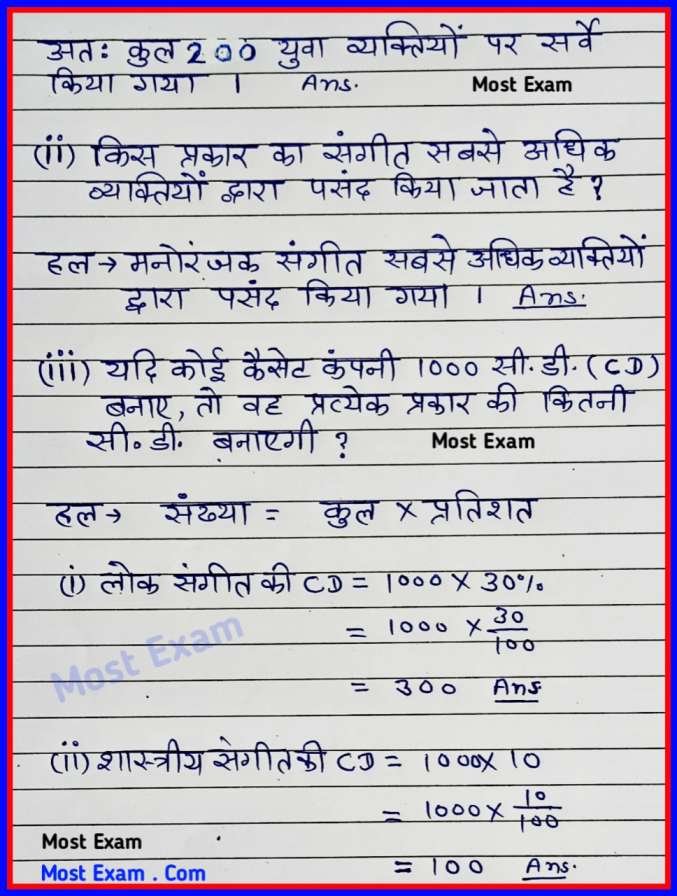 अतः कुल 200 युवा व्यक्तियों पर सर्वे
किया गया । Ans. Most Exam
(ii) किस प्रकार का संगीत सबसे अधिक
व्यक्तियों द्वारा पसंद किया जाता है ?
हल → मनोरंजक संगीत सबसे अधिक व्यक्तियों
द्वारा पसंद किया गया । Ans.
(iii) यदि कोई कैसेट कंपनी 1000 सी.डी. (CD)
बनाए, तो वह प्रत्येक प्रकार की कितनी
सी.डी. बनाएगी ? Most Exam
हल → संख्या = कुल × प्रतिशत
(i) लोक संगीत की CD = 1000 × 30%
= 1000 × 30/100
Most Exam
= 300 Ans
(ii) शास्त्रीय संगीत की CD = 1000 × 10
= 1000 × 10/100
Most Exam
Most Exam . Com
= 100 Ans.